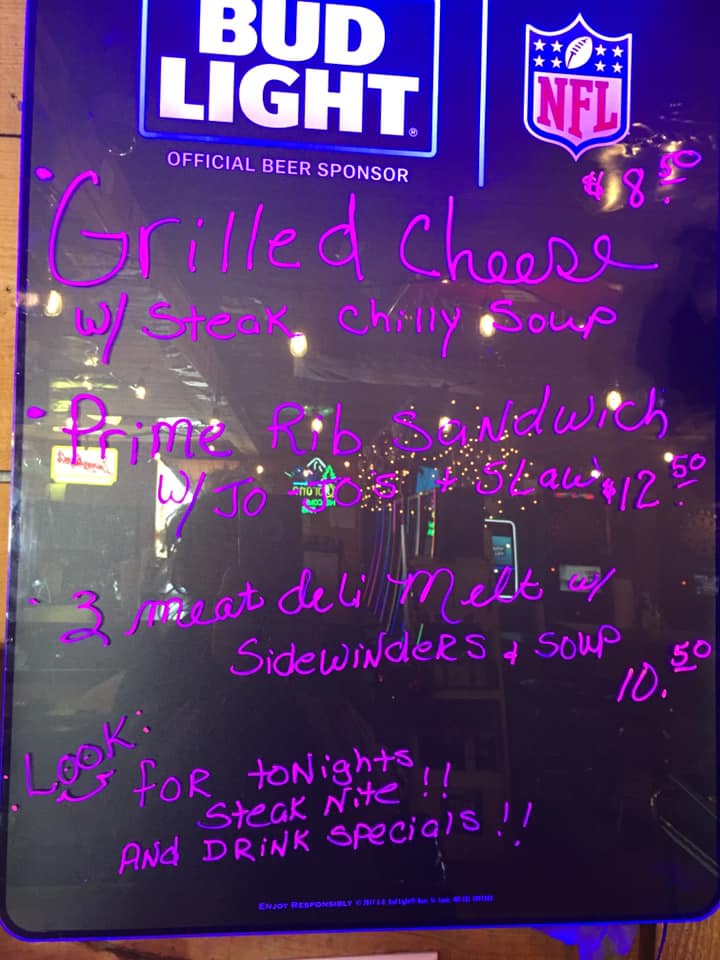 BUD
LIGHT®
NFL
OFFICIAL BEER SPONSOR
$8.50
• Grilled Cheese
w/ Steak Chilly Soup
• Prime Rib Sandwich
w/ JO-JO'S + SLaw $12.50
• 3 meat deli Melt w/
SideWINDERS & SOUP
10.50
Look:
foR toNights
Steak Nite!!
ANd DRiNK Specials!!
ENJOY RESPONSIBLY